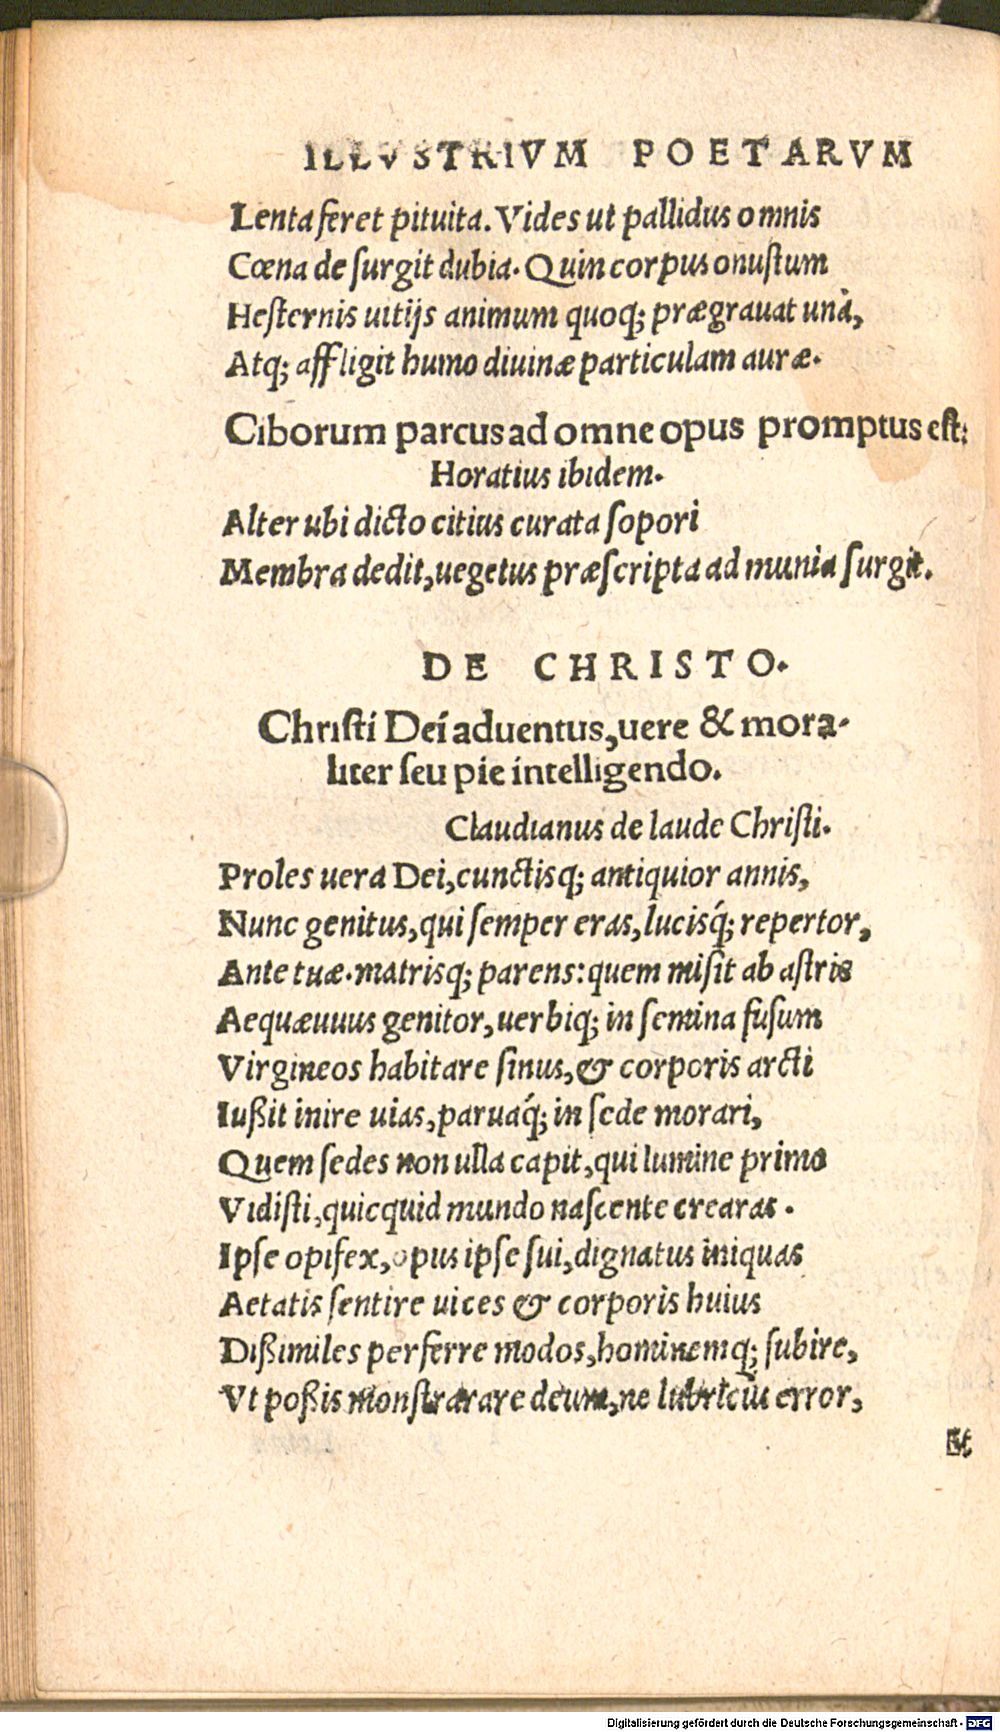 ILLVSTRIVM POETARVM
Lenta feret pituita. Vides ut pallidus omnis
Cœna de surgit dubia. Quin corpus onustum
Hesternis uitijs animum quoq; prægrauat unà,
Atq; affligit humo diuinæ particulam auræ.
Ciborum parcus ad omne opus promptus est:
Horatius ibidem.
Alter ubi dicto citius curata sopori
Membra dedit, uegetus præscripta ad munia surgit.
DE CHRISTO.
Christi Dei aduentus, uere & mora-
liter seu pie intelligendo.
Claudianus de laude Christi.
Proles uera Dei, cunctisq; antiquior annis,
Nunc genitus, qui semper eras, lucisq́; repertor,
Ante tuæ. matrisq; parens: quem misit ab astris
Aequæuuus genitor, uerbiq; in semina fusum
Virgineos habitare sinus, & corporis arcti
Iußit inire uias, paruaq́; in sede morari,
Quem sedes non ulla capit, qui lumine primo
Vidisti, quicquid mundo nascente crearas.
Ipse opifex, opus ipse sui, dignatus iniquas
Aetatis sentire uices & corporis huius
Dißimiles perferre modos, hominemq; subire,
Vt poßis monstrarare deum, ne lubricus error,
Et
Digitalisierung gefördert durch die Deutsche Forschungsgemeinschaft - DFG